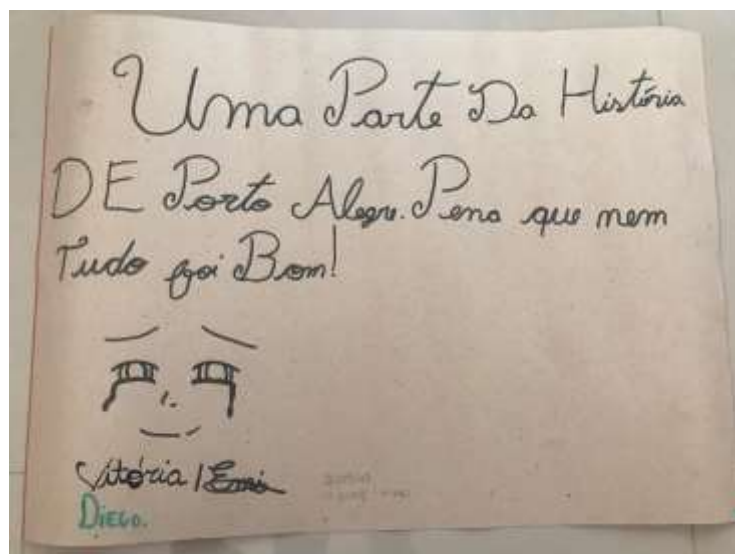 Uma Parte Da História
DE Porto Alegre. Pena que nem
Tudo foi Bom!
Vitória | Emi
Diego.